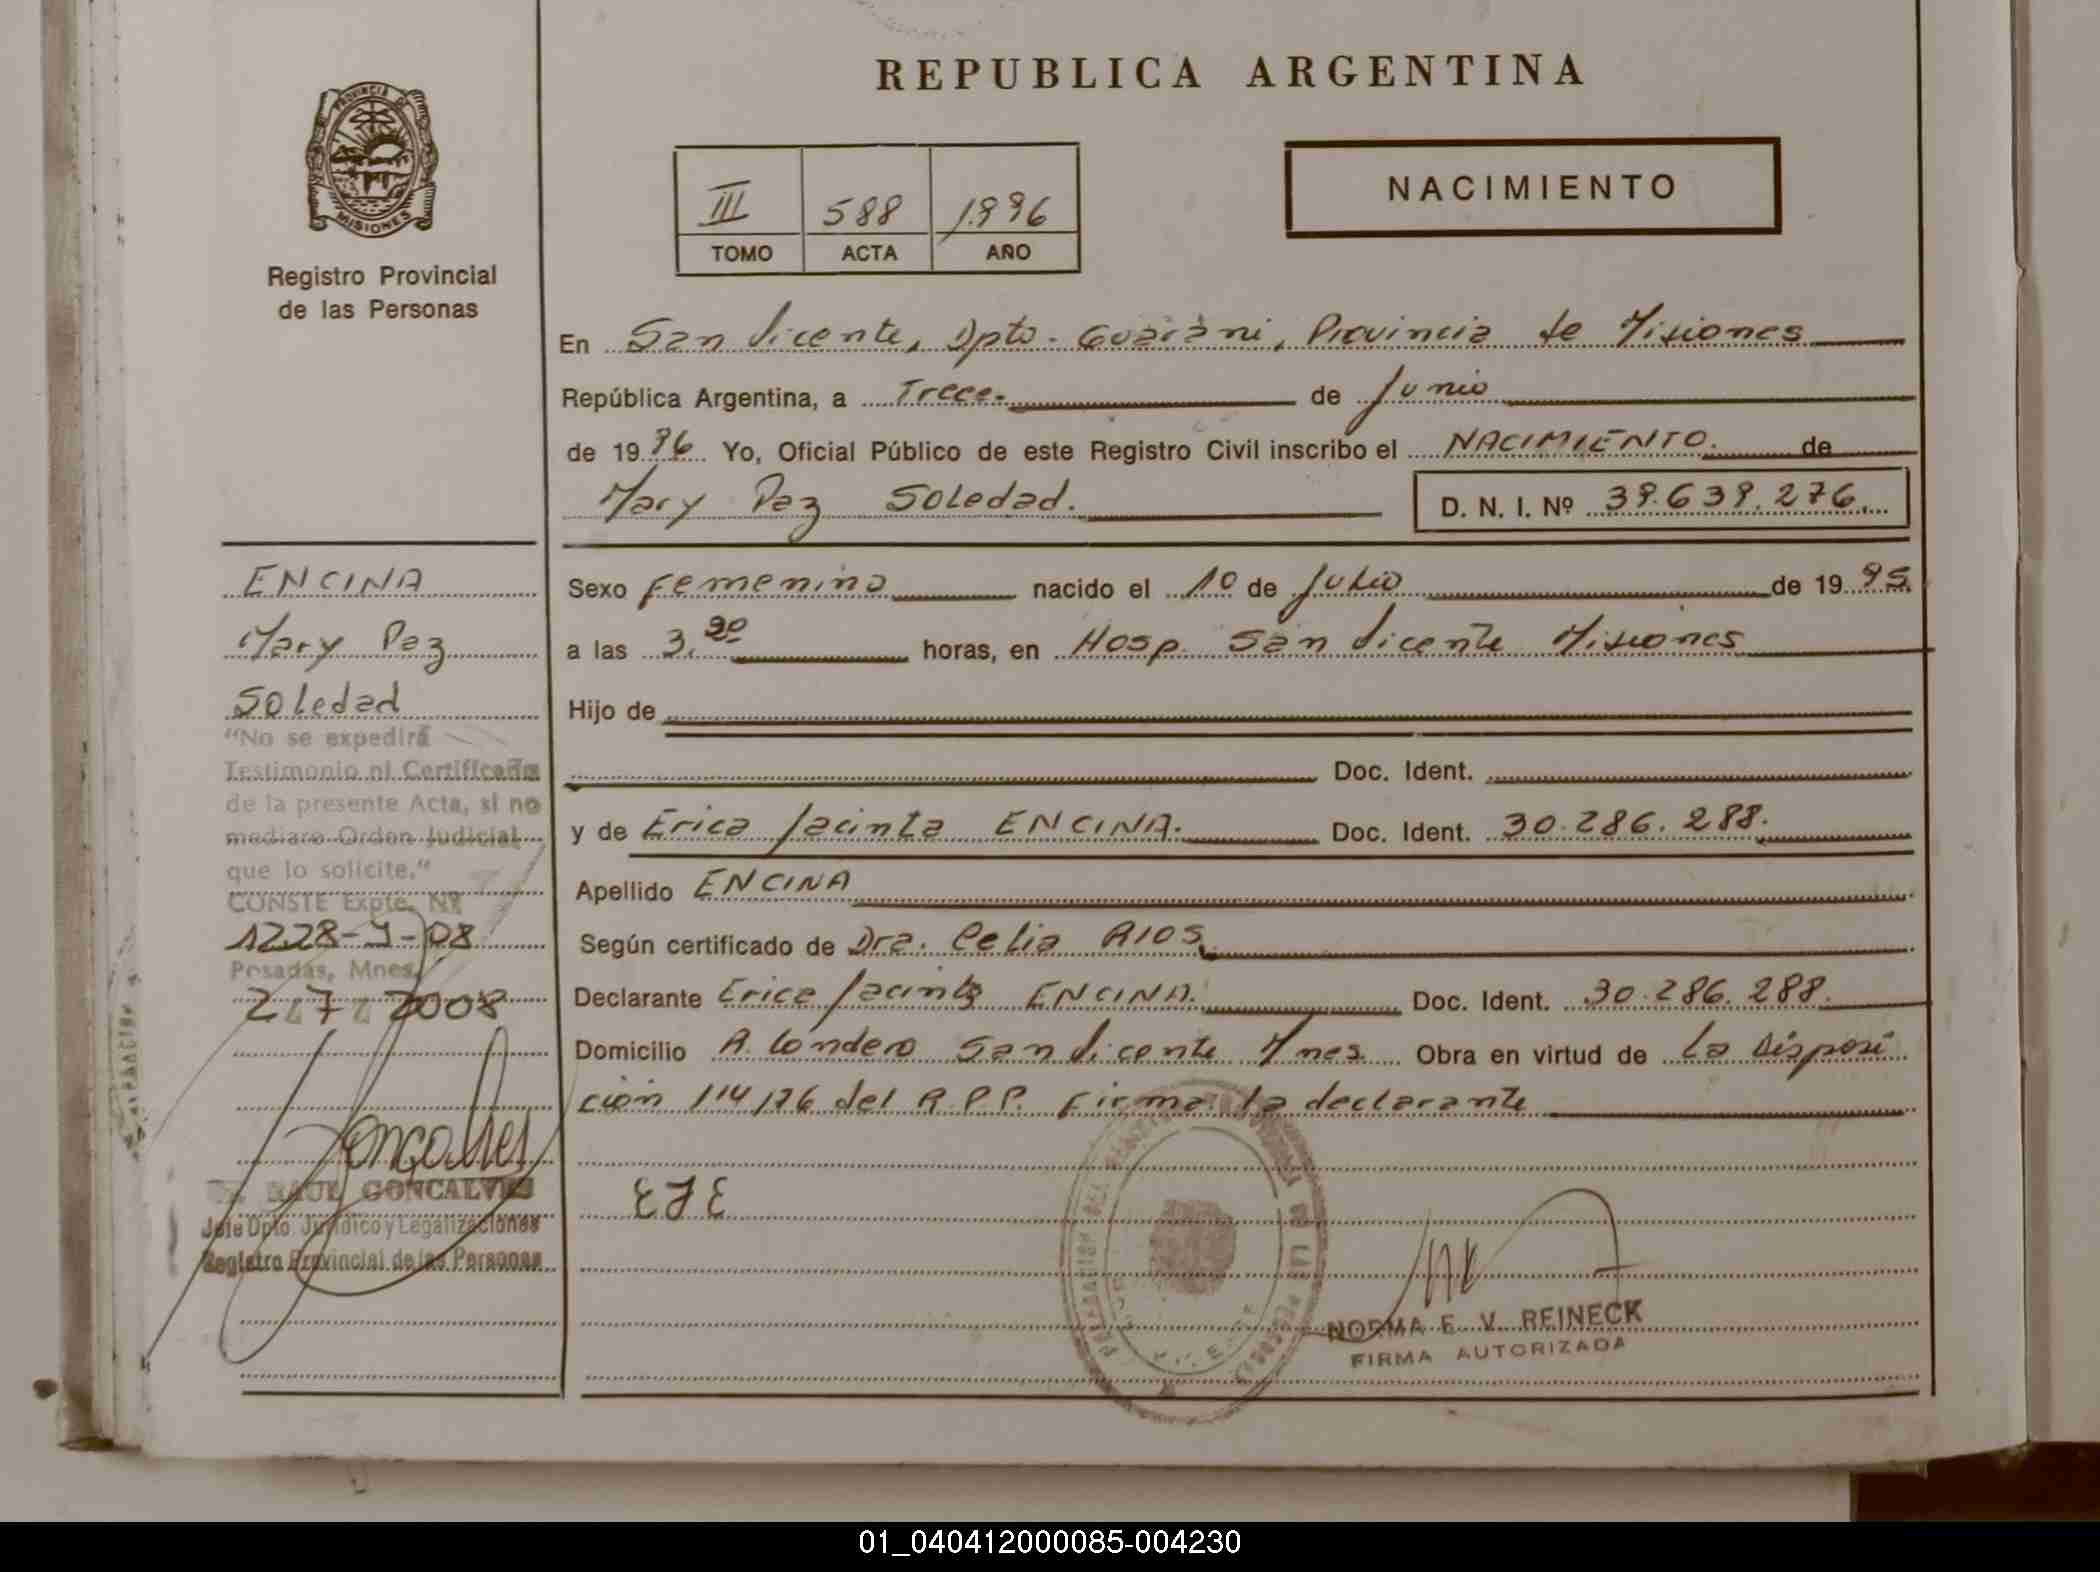 REPUBLICA ARGENTINA
PROVINCIA DE
MISIONES
Registro Provincial
de las Personas
III 588 1996
TOMO ACTA AÑO
NACIMIENTO
En San Vicente, Dpto. Guaraní, Provincia de Misiones
República Argentina, a Trece. de Junio
de 1996 Yo, Oficial Público de este Registro Civil inscribo el NACIMIENTO. de
Mary Paz Soledad.
D. N. I. Nº 39.639.276.
Sexo Femenino nacido el 10 de Julio de 1995.
a las 3.20 horas, en Hosp. San Vicente Misiones
Hijo de
Doc. Ident.
y de Erica Jacinta ENCINA. Doc. Ident. 30.286.288.
Apellido ENCINA
Según certificado de Dra. Celia RIOS.
Declarante Erica Jacinta ENCINA. Doc. Ident. 30.286.288.
Domicilio A. Londero San Vicente Mnes. Obra en virtud de La Disposi
ción 114/76 del R.P.P. Firma la declarante
EJE
NORMA E. V. REINECK
FIRMA AUTORIZADA
ENCINA
Mary Paz
Soledad
"No se expedirá
Testimonio ni Certificado
de la presente Acta, si no
mediare Orden Judicial
que lo solicite."
CONSTE Expte. Nº
1228-Y-08
Posadas, Mnes.
2 7 2008
RAUL GONCALVES
Jefe Dpto. Jurídico y Legalizaciones
Registro Provincial de las Personas
01_040412000085-004230